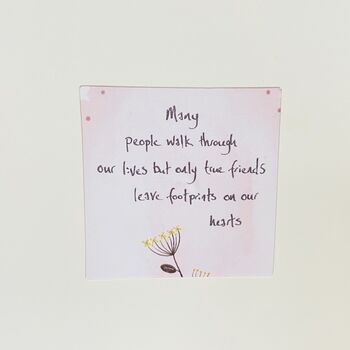 Many
people walk through
our lives but only true friends
leave footprints on our
hearts